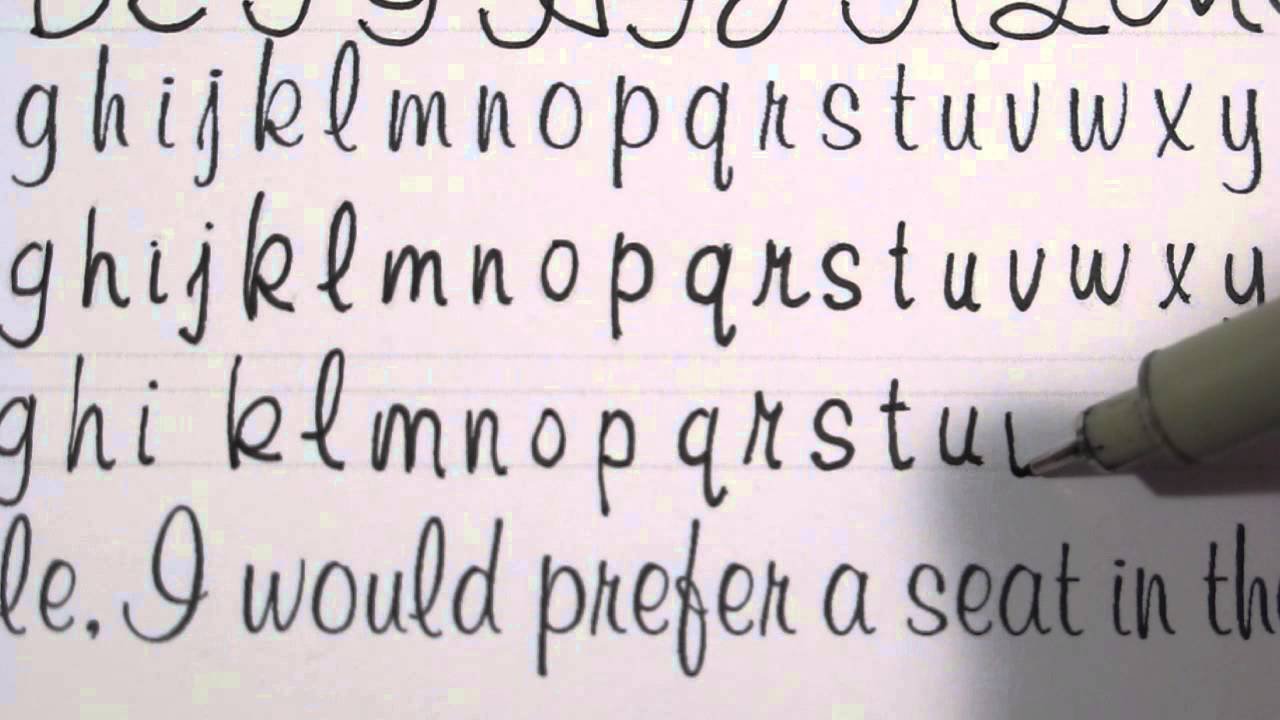 g h i j k l m n o p q r s t u v w x y
g h i j k l m n o p q r s t u v w x y
g h i k l m n o p q r s t u
le. I would prefer a seat in the